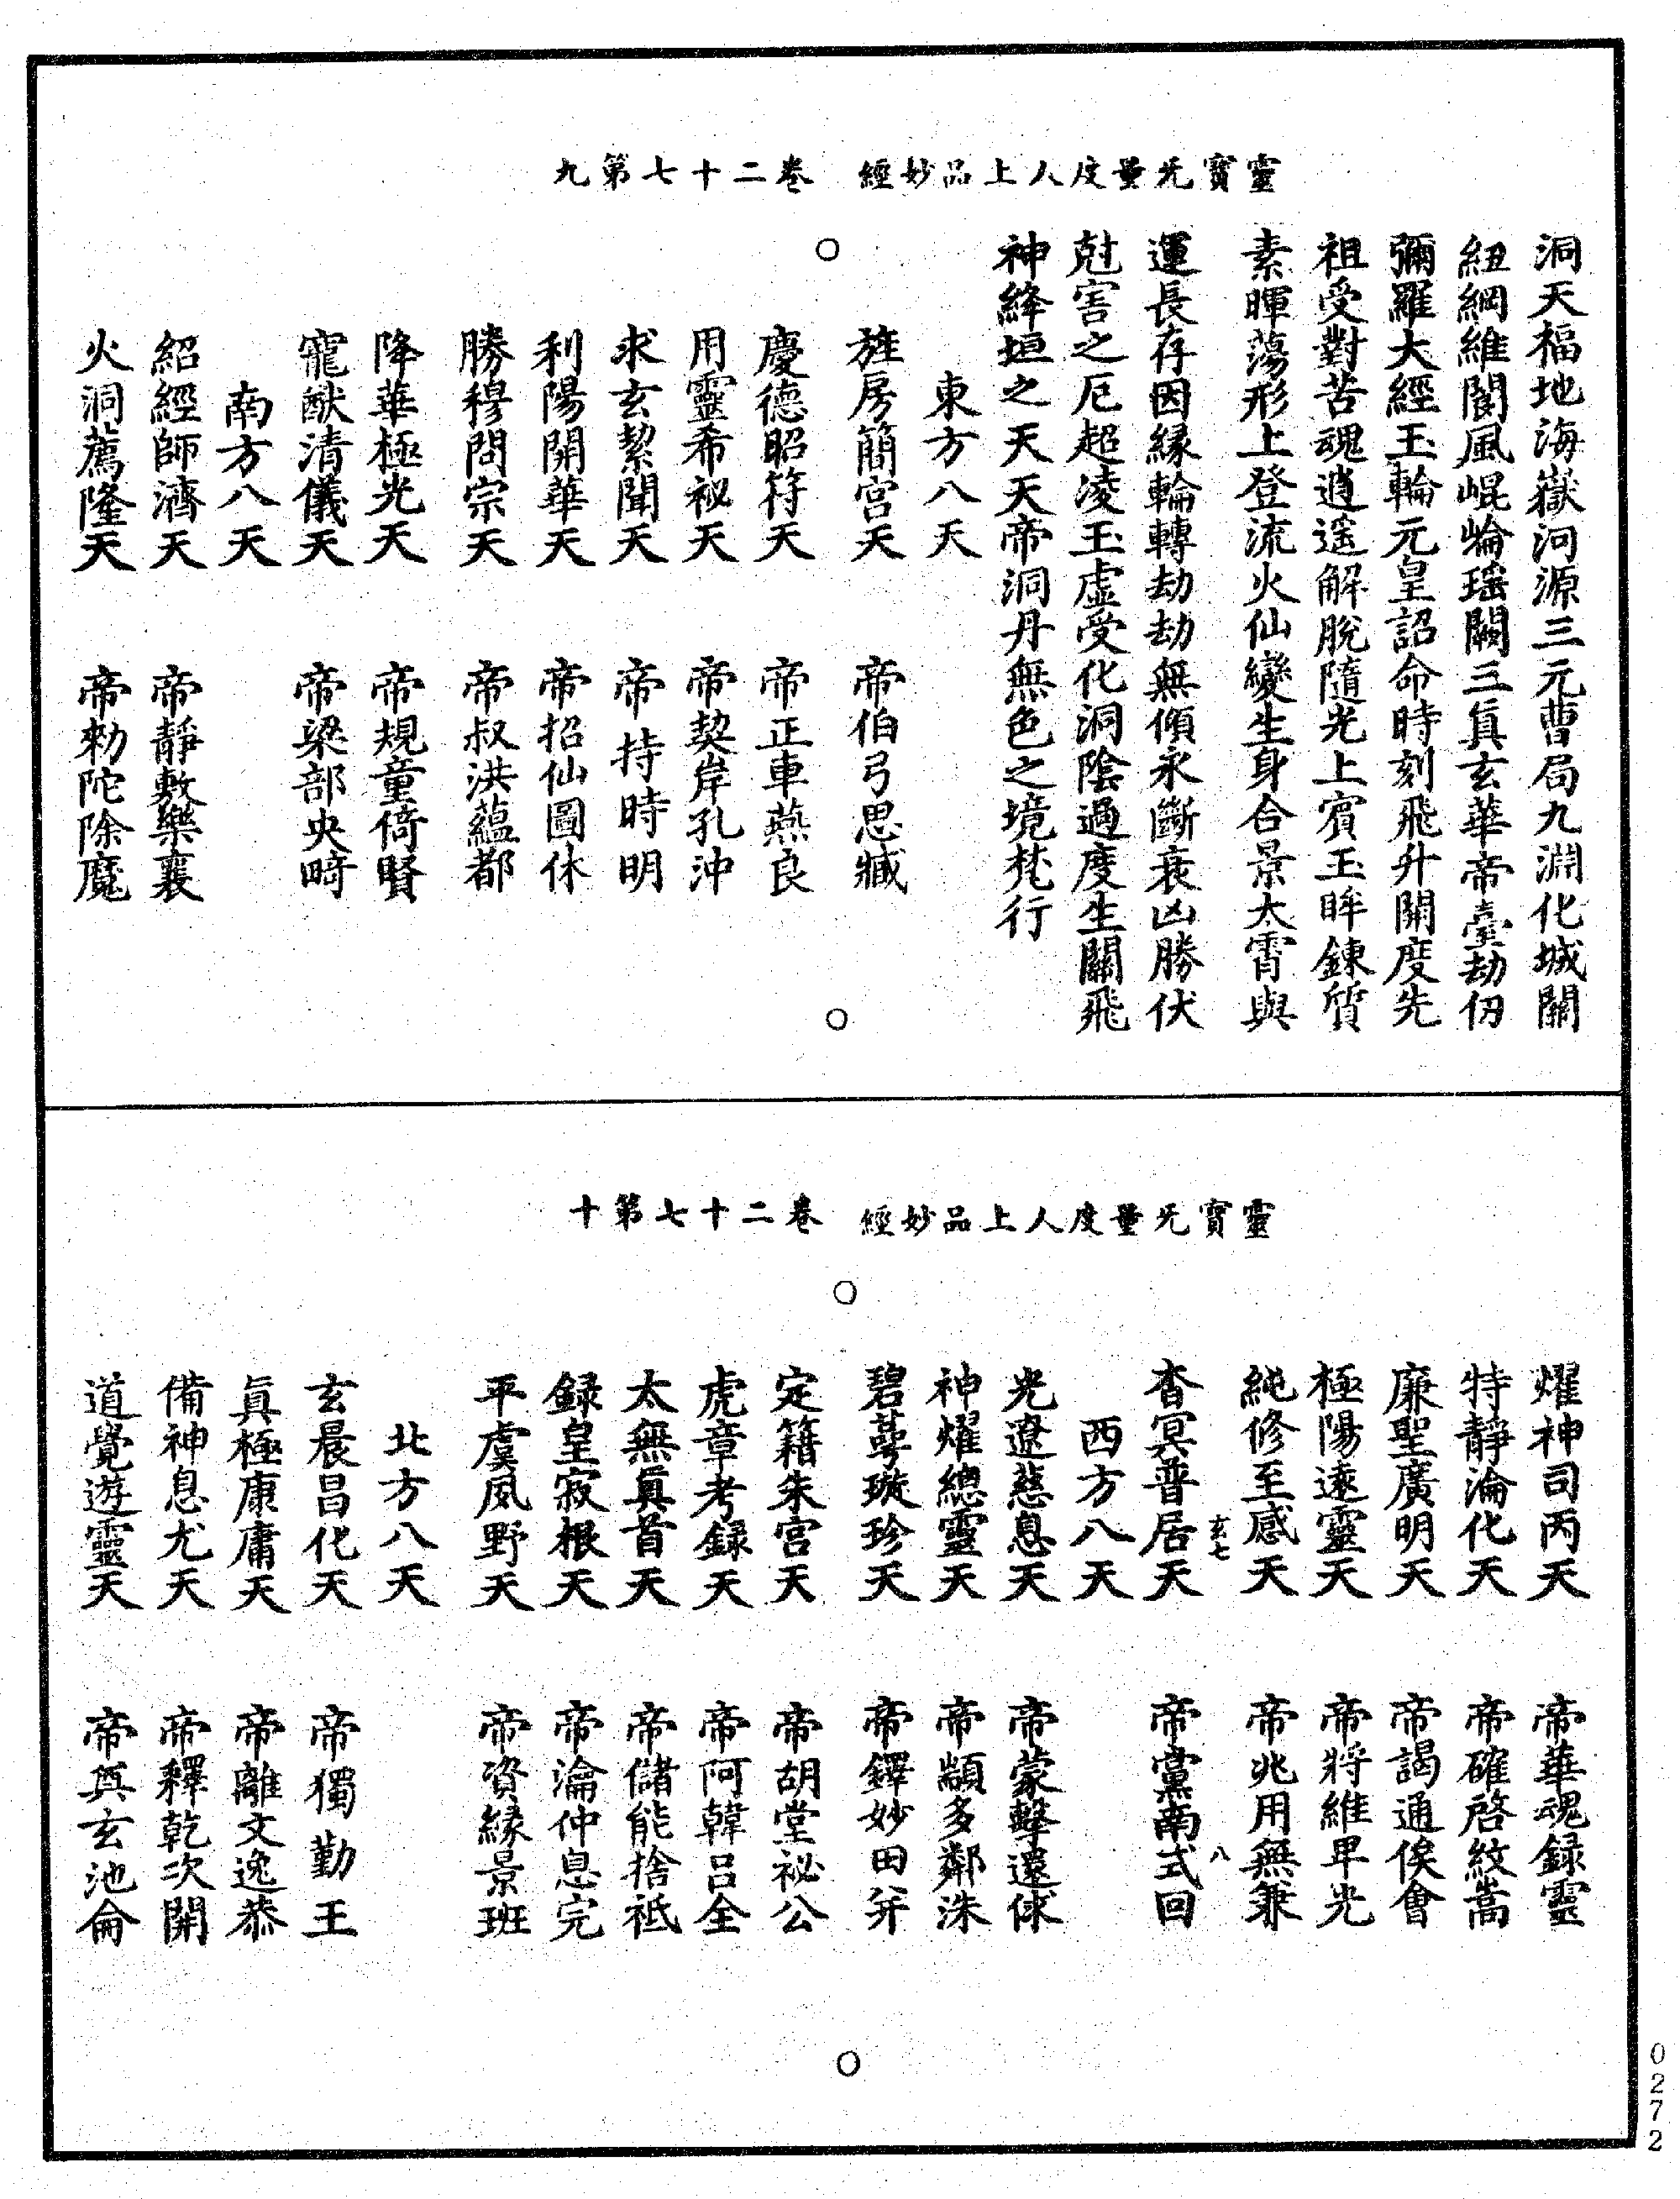 靈寶无量度人上品妙經　卷二十七第九
洞天福地海嶽河源三元曹局九淵化城關
紐綱維閬風崐崘瑶闕三眞玄華帝臺劫仞
彌羅大經玉輪元皇詔命時刻飛升開度先
祖受對苦魂逍遥解脫隨光上賓玉眸鍊質
素暉蕩形上登流火仙變生身合景太霄與
運長存因緣輪轉劫劫無傾永斷衰凶勝伏
尅害之厄超凌玉虛受化洞陰過度生關飛
神絳垣之天天帝洞丹無色之境梵行
東方八天
旌房簡宮天　帝伯弓思臧
慶德昭符天　帝正車燕良
用靈希祕天　帝契岸孔沖
求玄絜聞天　帝持時明
利陽開華天　帝招仙圖休
勝穆問宗天　帝叔洪蘊都
降華極光天　帝規童倚賢
寵猷清儀天　帝梁部央畸
南方八天
紹經師濟天　帝靜敷樂襄
火洞薦隆天　帝勑陀除魔
靈寶无量度人上品妙經　卷二十七第十
燿神司丙天　帝華魂録靈
特靜淪化天　帝確啓紋嵩
廉聖廣明天　帝謁通俟會
極陽遠靈天　帝將維畢光
純修至感天　帝兆用無兼
玄七　八
杳冥普居天　帝黨南式回
西方八天
光遼慈息天　帝蒙擊還俅
神燿總靈天　帝顓多鄰洙
碧蕚璇珍天　帝鐸妙田并
定籍朱宮天　帝胡堂祕公
虎章考録天　帝阿韓呂全
太無眞首天　帝儲能捨祇
録皇寂根天　帝淪仲息完
平虞夙野天　帝資緣景班
北方八天
玄晨昌化天　帝獨勤王
眞極康庸天　帝離文逸恭
備神息尤天　帝釋乾次開
道覺遊靈天　帝眞玄池侖
0272